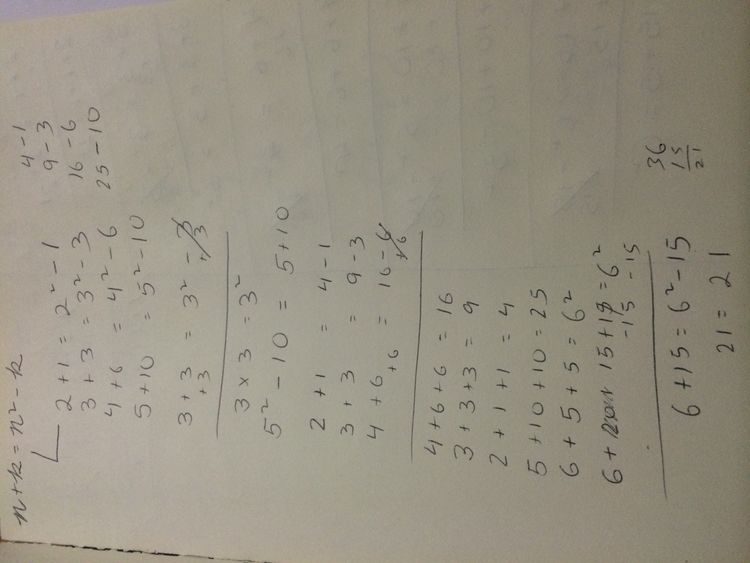 n+k = n² - k
2 + 1 = 2² - 1
3 + 3 = 3² - 3
4 + 6 = 4² - 6
5 + 10 = 5² - 10
4 - 1
9 - 3
16 - 6
25 - 10
3 + 3 = 3² - 3
+3 +3
3 × 3 = 3²
5² - 10 = 5 + 10
2 + 1 = 4 - 1
3 + 3 = 9 - 3
4 + 6 = 16 - 6
+6 +6
4 + 6 + 6 = 16
3 + 3 + 3 = 9
2 + 1 + 1 = 4
5 + 10 + 10 = 25
6 + 5 + 5 = 6²
6 + 15 + 15 = 6²
-15 -15
6 + 15 = 6² - 15
21 = 21
36
15
21